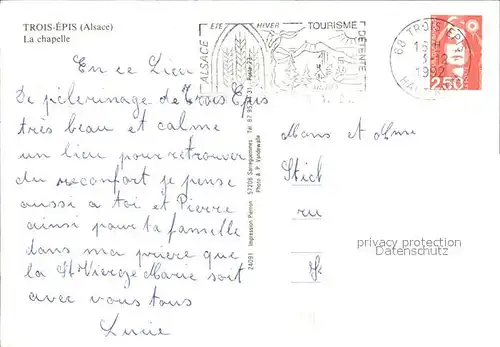 TROIS-ÉPIS (Alsace)
La chapelle
ALSACE
ETE HIVER
TOURISME
DÉTENTE
68 TROIS EPIS
1992
2,50
En ce Lieu
De pélerinage de Trois Epis
très beau et calme
un lieu pour retrouver
du reconfort je pense
aussi a toi et Pierre
ainsi pour ta famille
dans ma prière que
la St Vierge Marie soit
avec vous tous
Lucie
24091 Impression Pierron 57206 Sarreguemines. Tél. 87 95
Photo A. P. Vandewalle
Mons et Mme
Stich
ru
privacy protection
Datenschutz